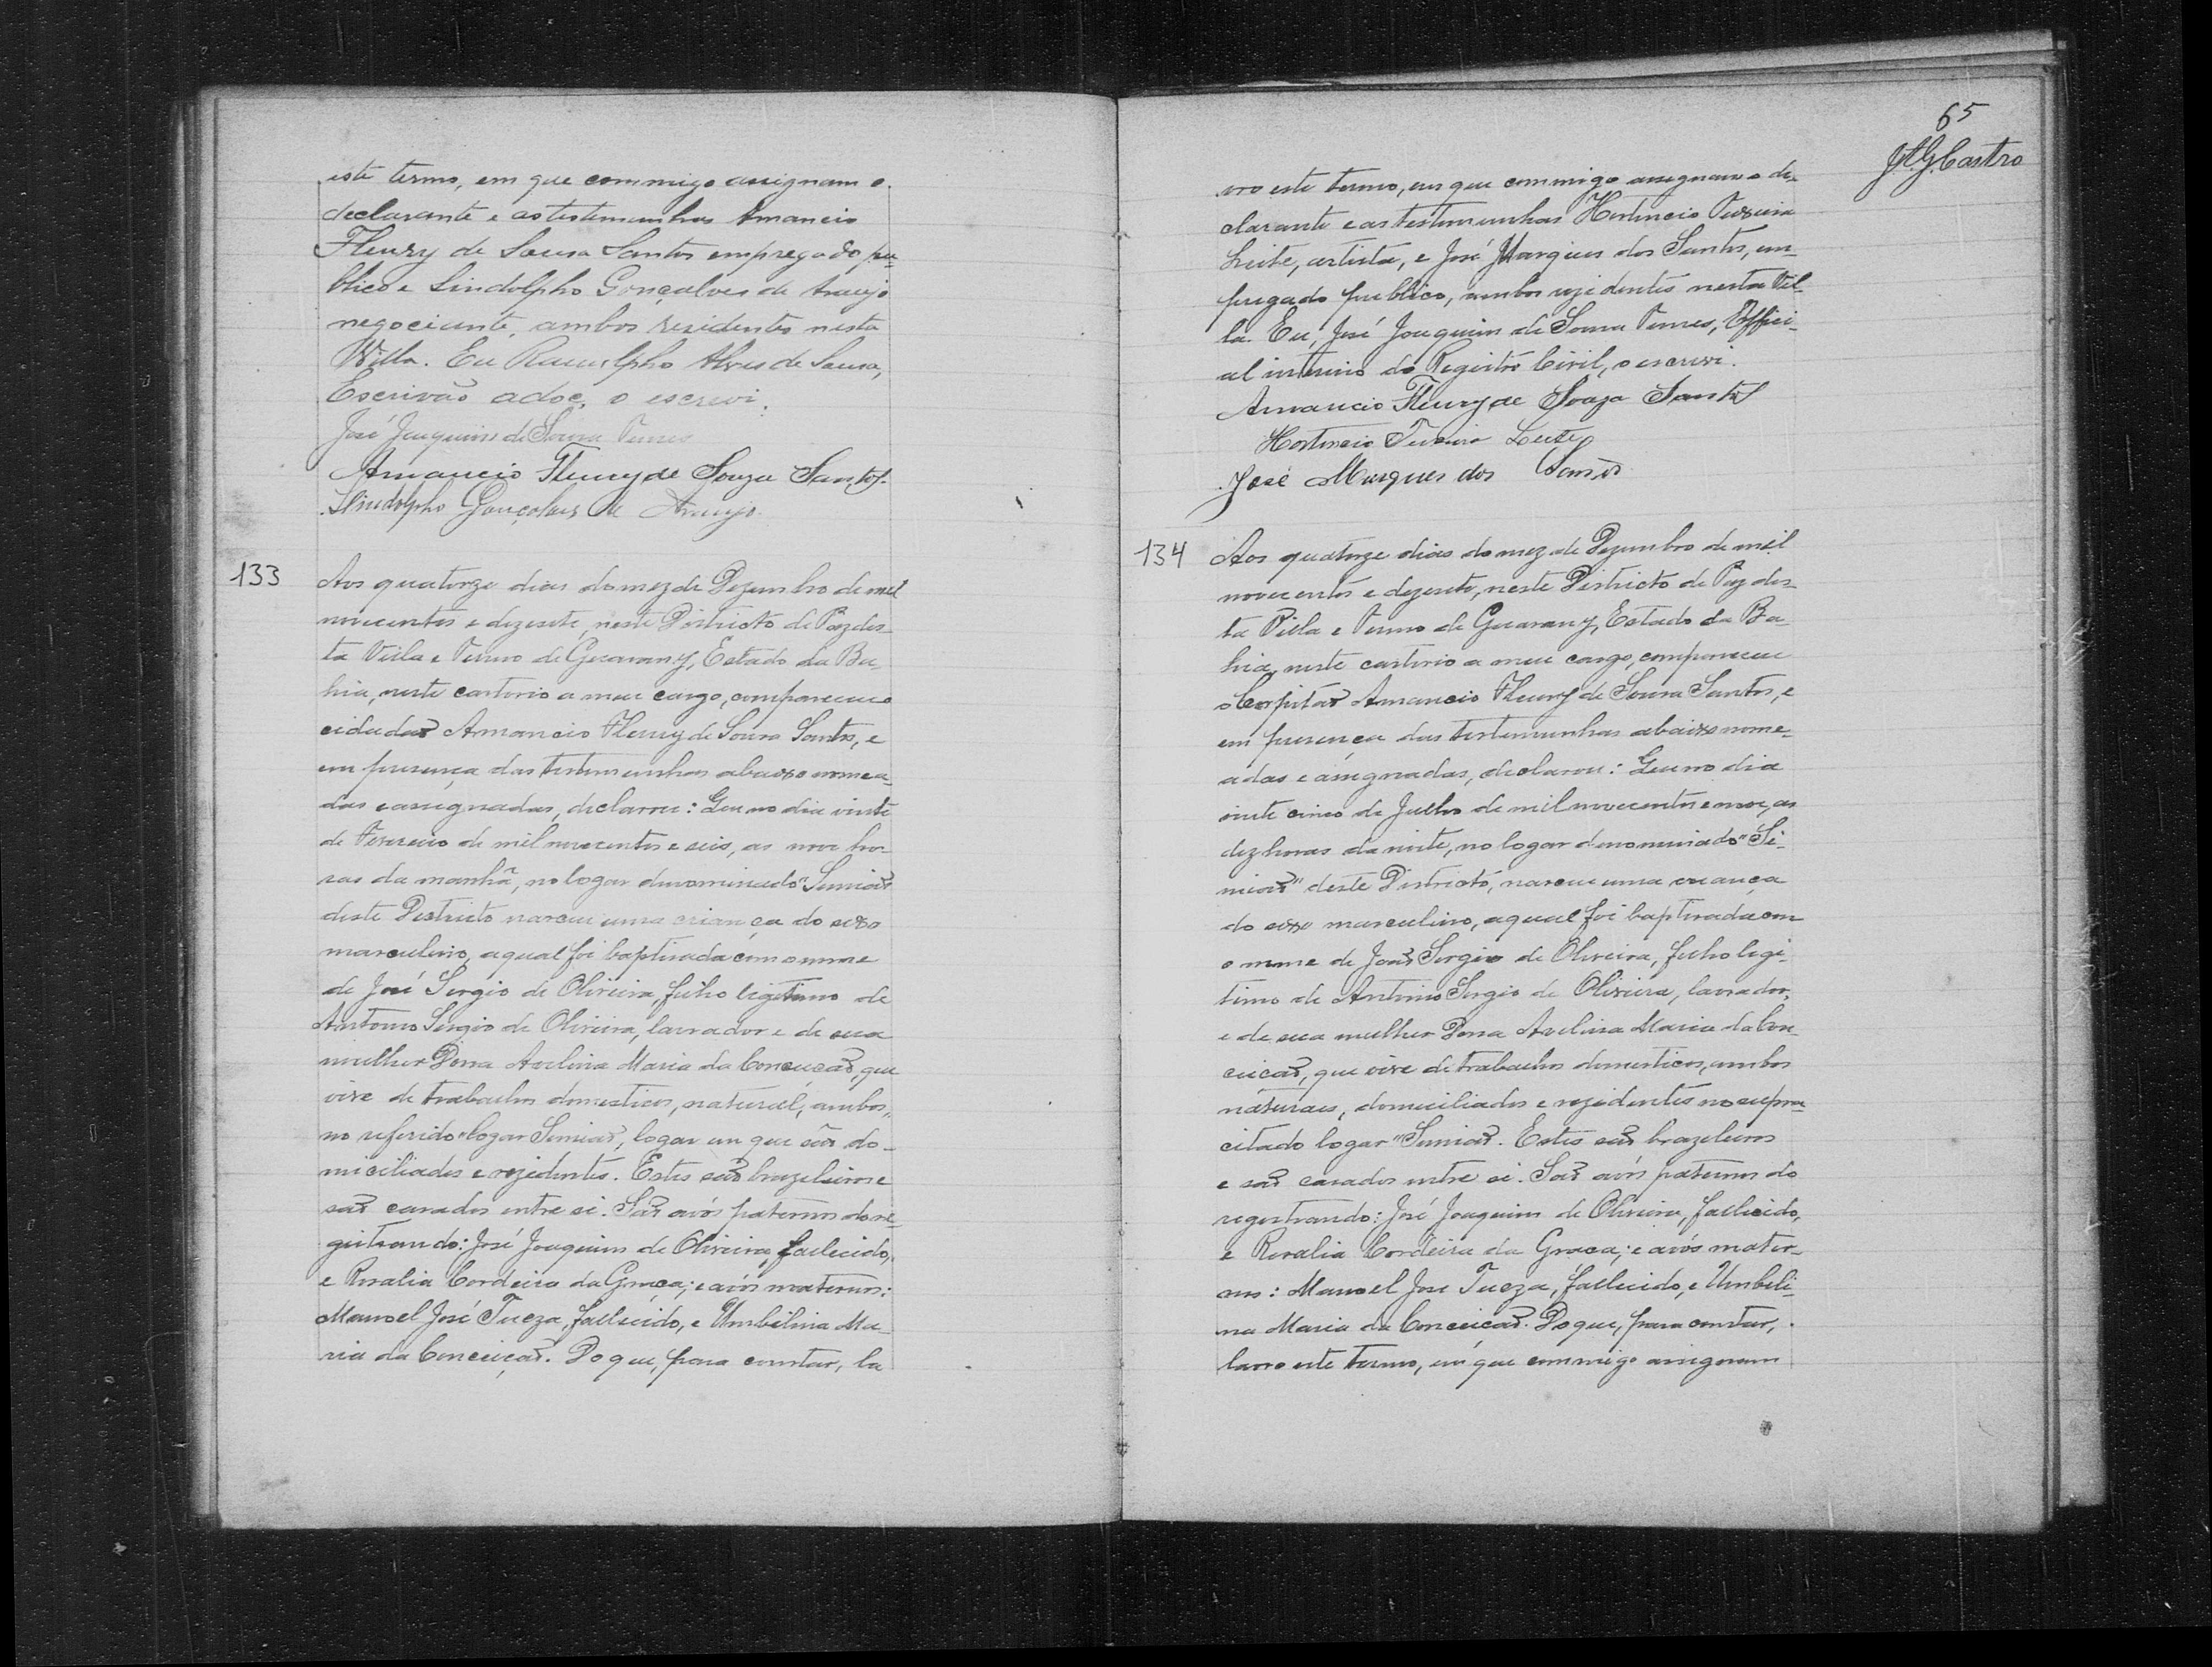 este termo, em que commigo assignam o
declarante e as testemunhas Amancio
Fleury de Sousa Santos empregado pu-
blico e Lindolpho Gonçalves de Araujo
negociante, ambos residentes nesta
Villa. Eu Raulpho Alves de Sousa,
Escrivão adoc, o escrevi.
José Joaquim de Sousa
Amancio Fleury de Souza Santos.
Lindolpho Gonçalves de Araujo.
133
Aos quatorze dias do mez de Dezembro de mil
novecentos e dezesete, neste Districto de Paz des-
ta Villa e Termo de Guarany, Estado da Ba-
hia, neste cartorio a meu cargo, compareceu o
cidadão Amancio Fleury de Sousa Santos, e
em presença das testemunhas abaixo nomea-
das e assignadas, declarou: Que no dia vinte
de Fevereiro de mil novecentos e seis, as nove ho-
ras da manhã, no logar denominado "Simião
deste Districto nasceu uma criança do sexo
masculino, a qual foi baptisada com o nome
de José Sergio de Oliveira, filho legitimo de
Antonio Sergio de Oliveira, lavrador e de sua
mulher Dona Avelina Maria da Conceição, que
vive de trabalhos domesticos, natural, ambos,
no referido "logar Simião, logar em que são do-
miciliados e rezidentes. Estes são brazileiros e
são casados entre si. São avós paternos do re-
gistrando: José Joaquim de Oliveira, fallecido,
e Rosalia Cordeira da Graça; e avós maternos:
Manoel José Tueza, fallecido, e Umbilina Ma-
ria da Conceição. Do que, para constar, la
65
J.A.G. Castro
vro este termo, em que commigo assignam o de-
clarante e as testemunhas Hortencio Teixeira
Leite, artista, e José Marques dos Santos, em-
pregado publico, ambos rezidentes nesta Vil-
la. Eu, José Joaquim de Sousa, Offici-
al interino do Registro Civil, o escrevi.
Amancio Fleury de Souza Santos
Hortencio Teixeira Leite
José Marques dos Santos
134
Aos quatorze dias do mez de Dezembro de mil
novecentos e dezesete, neste Districto de Paz des-
ta Villa e Termo de Guarany, Estado da Ba-
hia, neste cartorio a meu cargo, compareceu
o Capitão Amancio Fleury de Sousa Santos, e
em presença das testemunhas abaixo nome-
adas e assignadas, declarou: Que no dia
vinte cinco de Julho de mil novecentos e nove, as
dez horas da noite, no logar denominado "Si-
mião" deste Districto, nasceu uma creança
do sexo masculino, a qual foi baptisada com
o nome de João Sergio de Oliveira, filho legi-
timo de Antonio Sergio de Oliveira, lavrador,
e de sua mulher Dona Avelina Maria da Con-
ceição, que vive de trabalhos domesticos, ambos
naturaes, domiciliados e rezidentes no supra-
citado logar "Simião. Estes são brazileiros
e são casados entre si. São avós paternos do
registrando: José Joaquim de Oliveira, fallecido,
e Rosalia Cordeira da Graça; e avós mater-
nos: Manoel José Tueza, fallecido, e Umbeli-
na Maria da Conceição. Do que, para constar,
lavro este termo, em que commigo assignam